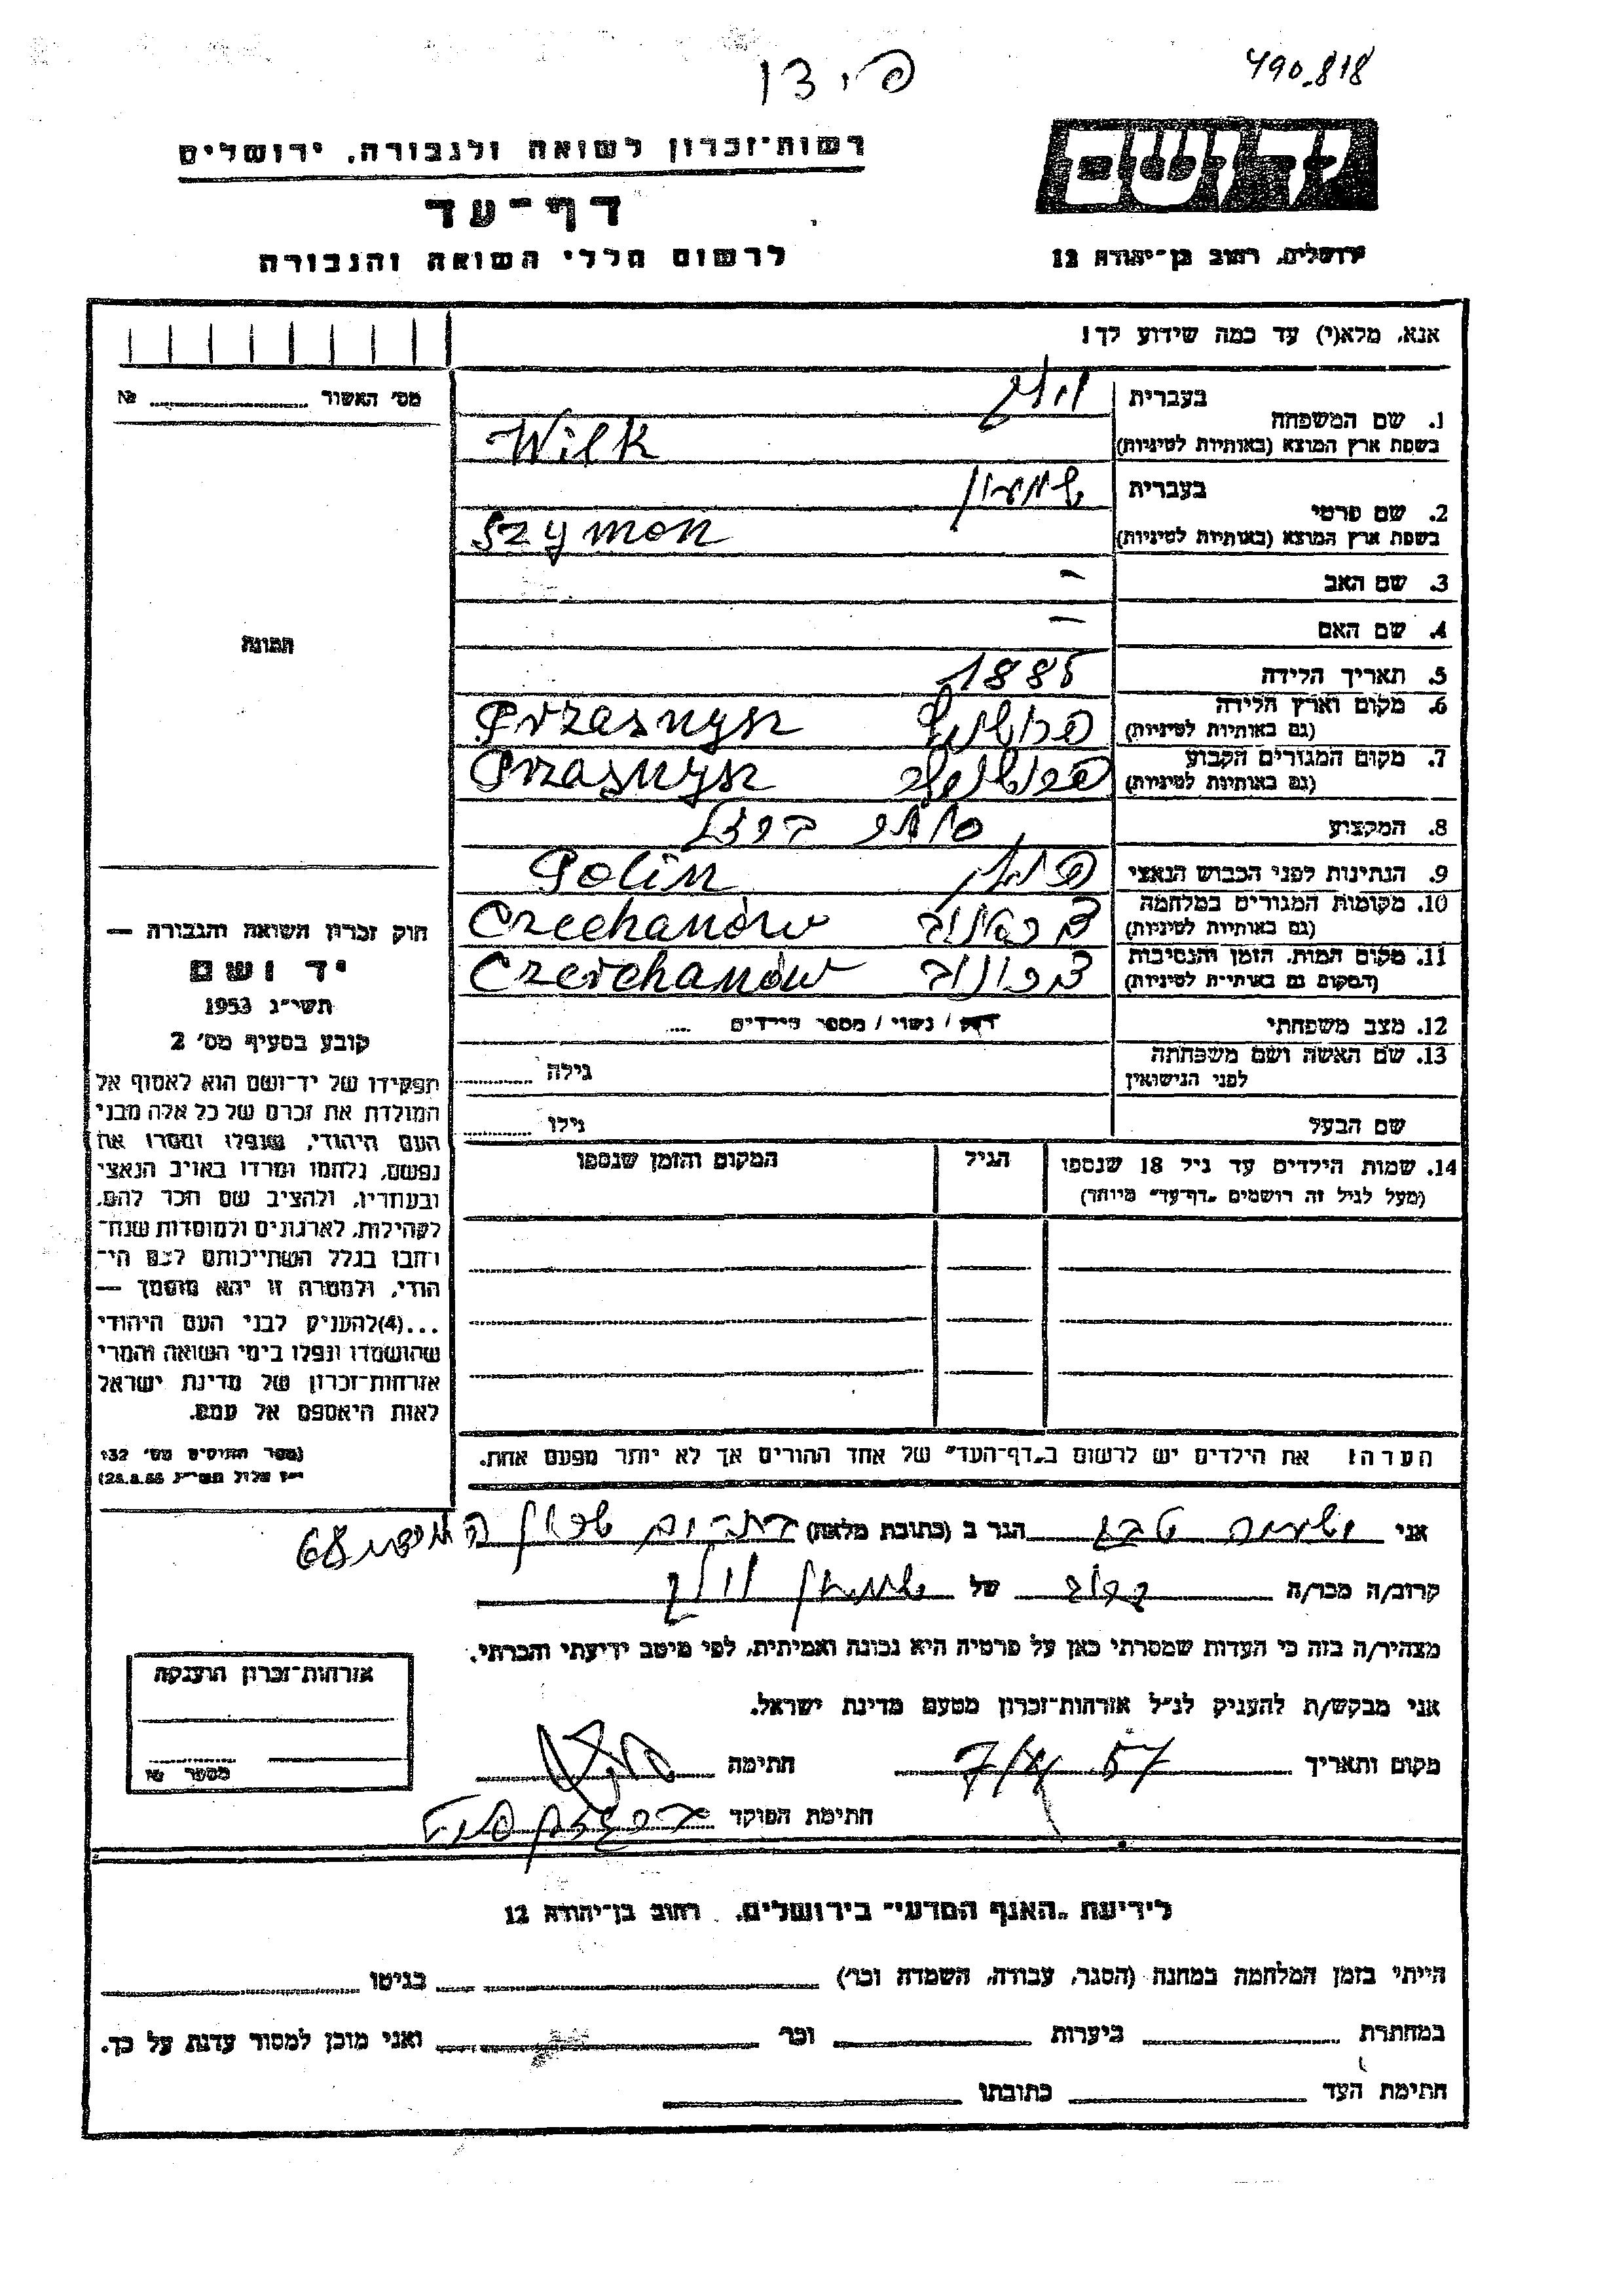 490.818
פ י ד ן
יד ושם
רשות־זכרון לשואה ולגבורה, ירושלים
דף־עד
ירושלים, רחוב בן־יהודה 12
לרשום חללי השואה והגבורה
אנא, מלא(י) עד כמה שידוע לך!
מס' האשור № 
1. שם המשפחה
בעברית ווילק
בשפת ארץ המוצא (באותיות לטיניות) Wilk
2. שם פרטי
בעברית שמעון
בשפת ארץ המוצא (באותיות לטיניות) Szymon
3. שם האב –
4. שם האם –
תמונה
5. תאריך הלידה 1885
6. מקום וארץ הלידה
(גם באותיות לטיניות) Przasnysz
7. מקום המגורים הקבוע
(גם באותיות לטיניות) Przasnysz
8. המקצוע סוחר ברזל
9. הנתינות לפני הכבוש הנאצי פולין Polin
10. מקומות המגורים במלחמה
(גם באותיות לטיניות) Czechanów
11. מקום המות, הזמן והנסיבות
(המקום גם באותיות לטיניות) Czerchanów
12. מצב משפחתי רווק / נשוי / מספר הילדים ....
13. שם האשה ושם משפחתה
לפני הנישואין גילה
שם הבעל גילו
14. שמות הילדים עד גיל 18 שנספו הגיל המקום והזמן שנספו
(מעל לגיל זה רושמים „דף־עד” מיוחד)
הערה: את הילדים יש לרשום ב„דף־העד” של אחד ההורים אך לא יותר מפעם אחת.
חוק זכרון השואה והגבורה —
יד ושם
תשי״ג 1953
קובע בסעיף מס׳ 2
תפקידו של יד־ושם הוא לאסוף אל
המולדת את זכרם של כל אלה מבני
העם היהודי, שנפלו ומסרו את
נפשם, נלחמו ומרדו באויב הנאצי
ובעוזריו, ולהציב שם וזכר להם,
לקהילות, לארגונים ולמוסדות שנח־
רבו בגלל השתייכותם לעם הי־
הודי, ולמטרה זו יהא מוסמך —
...(4)להעניק לבני העם היהודי
שהושמדו ונפלו בימי השואה והמרי
אזרחות־זכרון של מדינת ישראל
לאות היאספם אל עמם.
(ספר החוקים מס׳ 132
י״ז אלול תשי״ג 28.8.53)
אני הגר ב (כתובת מלאה) 68
קרוב/ה מכר/ה קרוב של שמעון ווילק
מצהיר/ה בזה כי העדות שמסרתי כאן על פרטיה היא נכונה ואמיתית, לפי מיטב ידיעתי והכרתי.
אני מבקש/ת להעניק לנ״ל אזרחות־זכרון מטעם מדינת ישראל.
מקום ותאריך חתימה
חתימת הפוקד
אזרחות־זכרון הוענקה
מספר №
לידיעת „האגף המדעי” בירושלים, רחוב בן־יהודה 12
הייתי בזמן המלחמה במחנה (הסגר, עבודה, השמדה וכו׳) בגיטו
במחתרת ביערות וכו׳ ואני מוכן למסור עדות על כך.
חתימת העד כתובתו